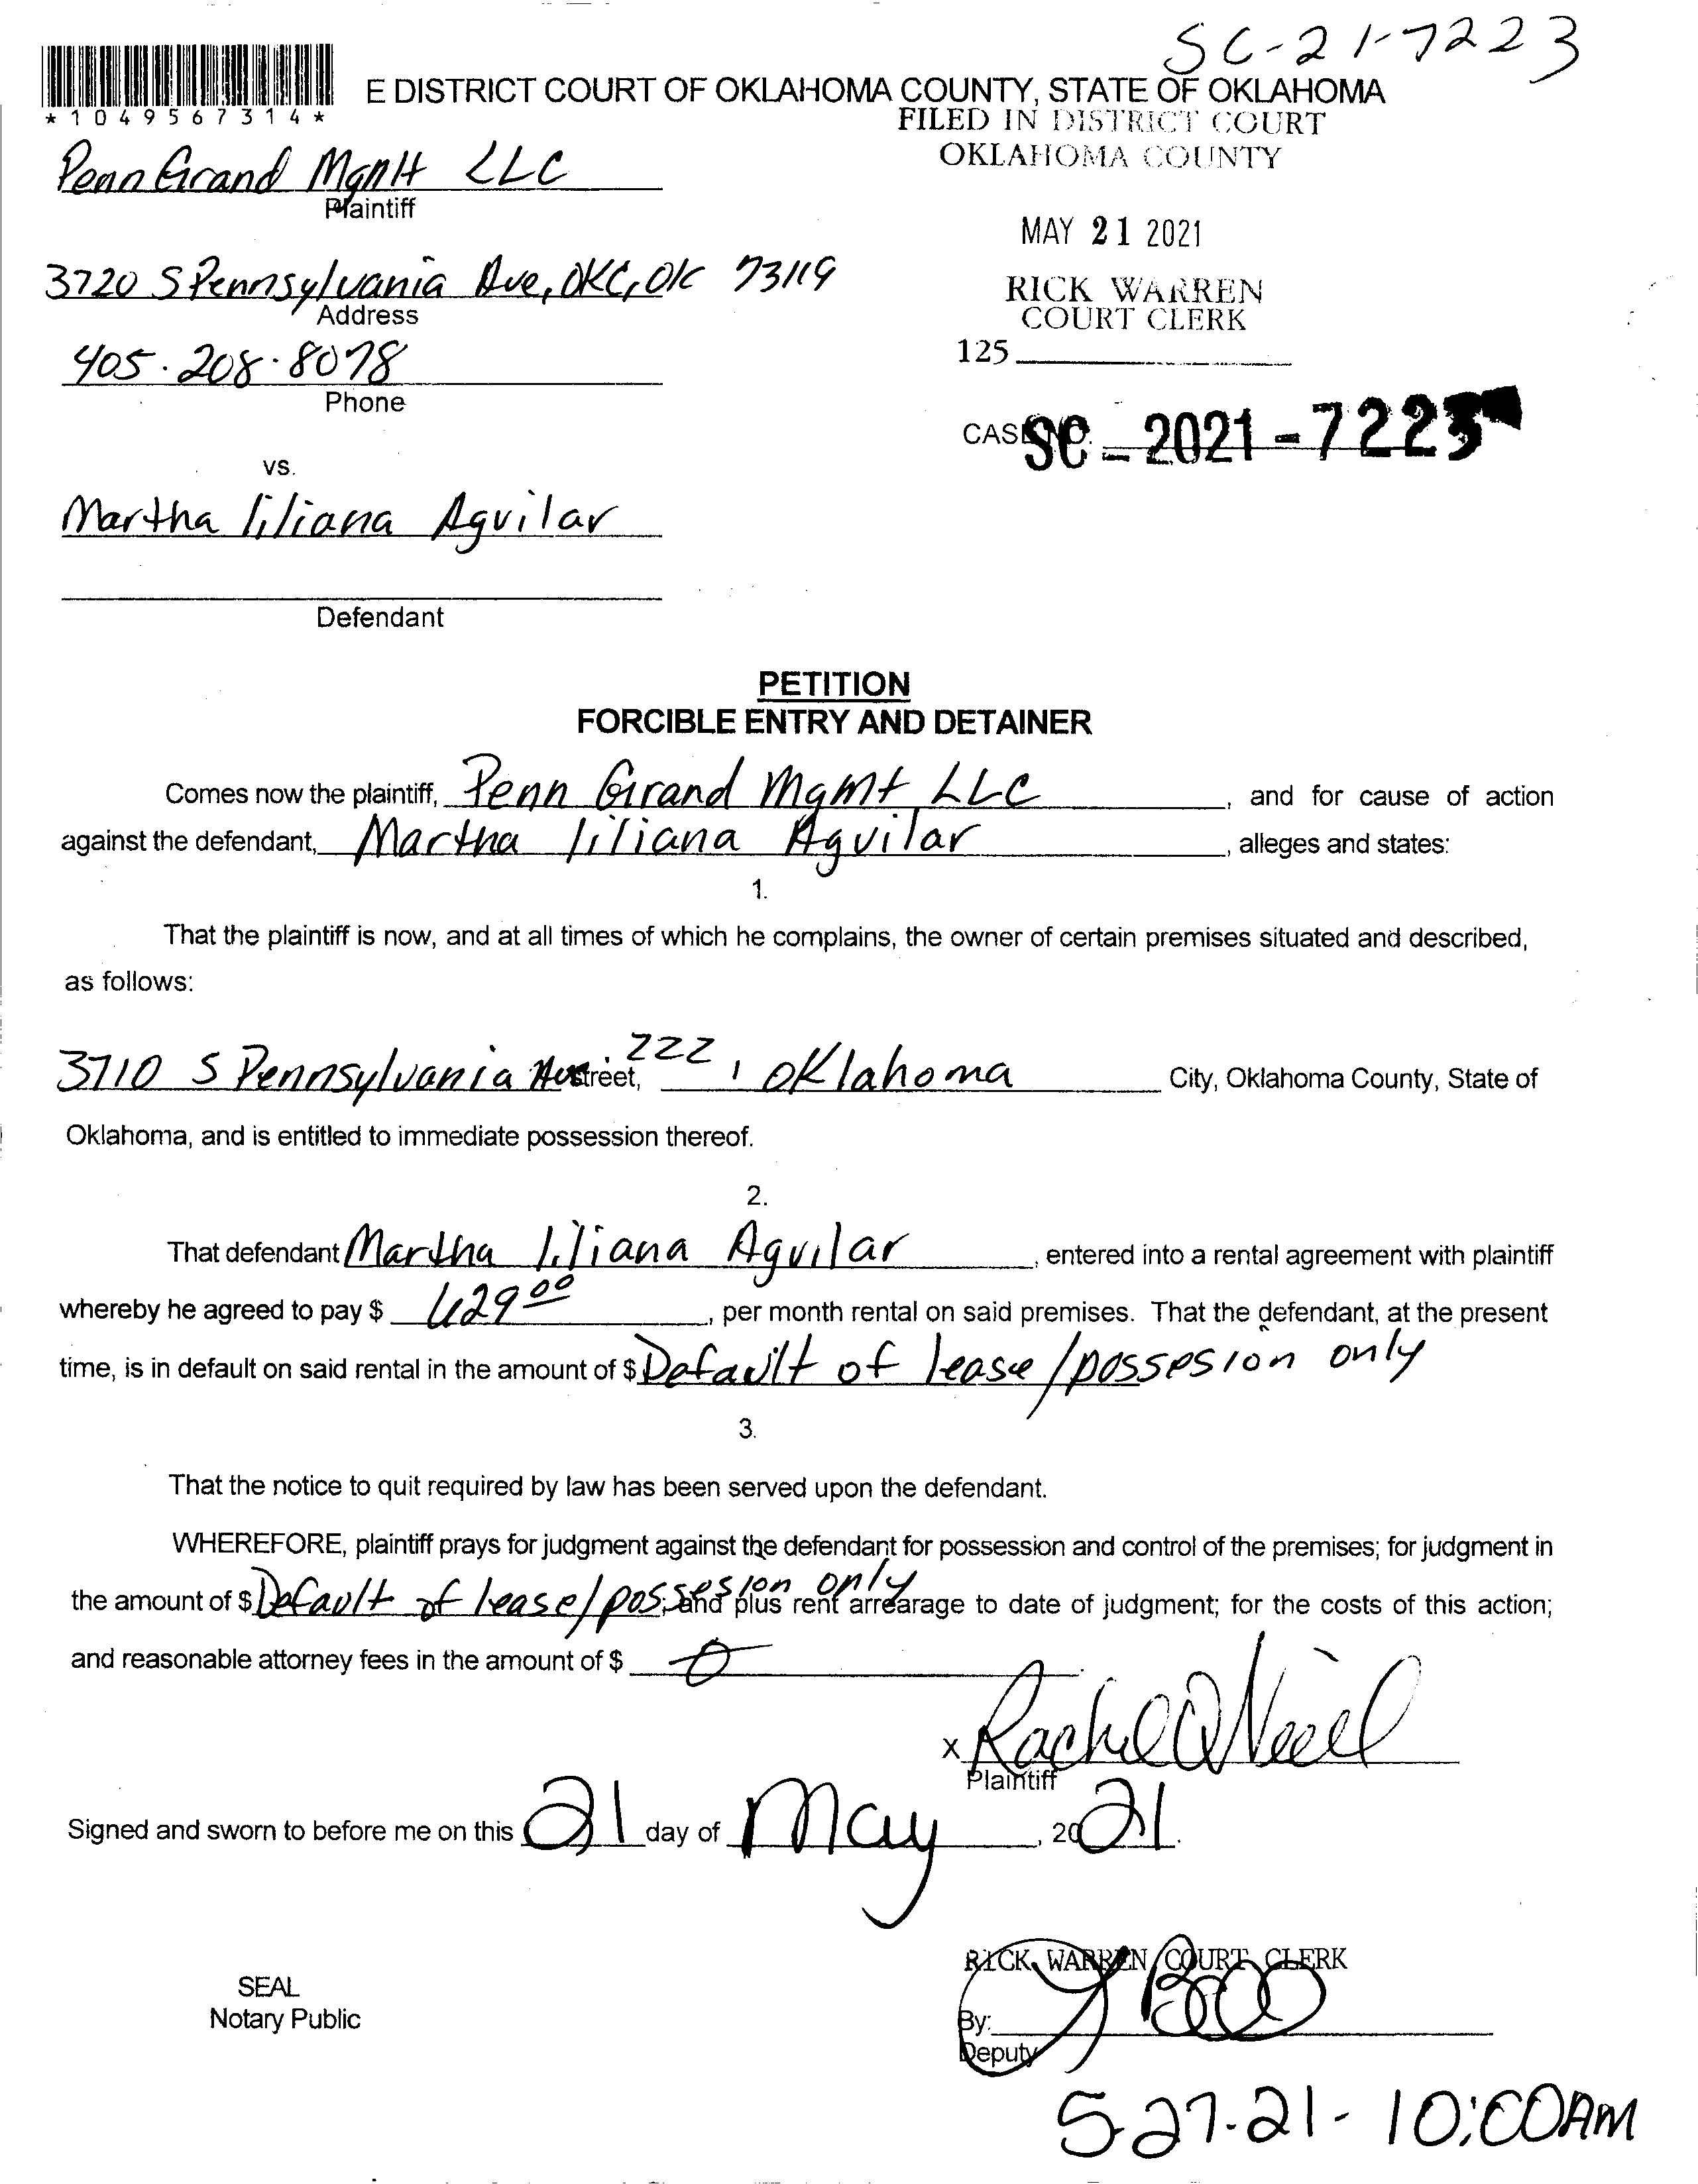 SC-21-7223
*1049567314*
E DISTRICT COURT OF OKLAHOMA COUNTY, STATE OF OKLAHOMA
FILED IN DISTRICT COURT
OKLAHOMA COUNTY
Penn Grand Mgnt LLC
Plaintiff
MAY 21 2021
3720 S Pennsylvania Ave, OKC, OK 73119
Address
RICK WARREN
COURT CLERK
405.208.8078
Phone
125
CASE NO. SC - 2021 - 7223
vs.
Martha liliana Aguilar
Defendant
PETITION
FORCIBLE ENTRY AND DETAINER
Comes now the plaintiff, Penn Grand Mgmt LLC, and for cause of action
against the defendant, Martha liliana Aguilar, alleges and states:
1.
That the plaintiff is now, and at all times of which he complains, the owner of certain premises situated and described,
as follows:
3710 S Pennsylvania Ave Street, 222, Oklahoma City, Oklahoma County, State of
Oklahoma, and is entitled to immediate possession thereof.
2.
That defendant Martha liliana Aguilar, entered into a rental agreement with plaintiff
whereby he agreed to pay $ 629.00, per month rental on said premises. That the defendant, at the present
time, is in default on said rental in the amount of $ Default of lease/possesion only
3.
That the notice to quit required by law has been served upon the defendant.
WHEREFORE, plaintiff prays for judgment against the defendant for possession and control of the premises; for judgment in
the amount of $ Default of lease/possesion only; and plus rent arrearage to date of judgment; for the costs of this action;
and reasonable attorney fees in the amount of $ 0
x Rachel O Neil
Plaintiff
Signed and sworn to before me on this 21 day of May, 2021.
RICK WARREN COURT CLERK
SEAL
Notary Public
By:
Deputy
5-27-21- 10:00AM